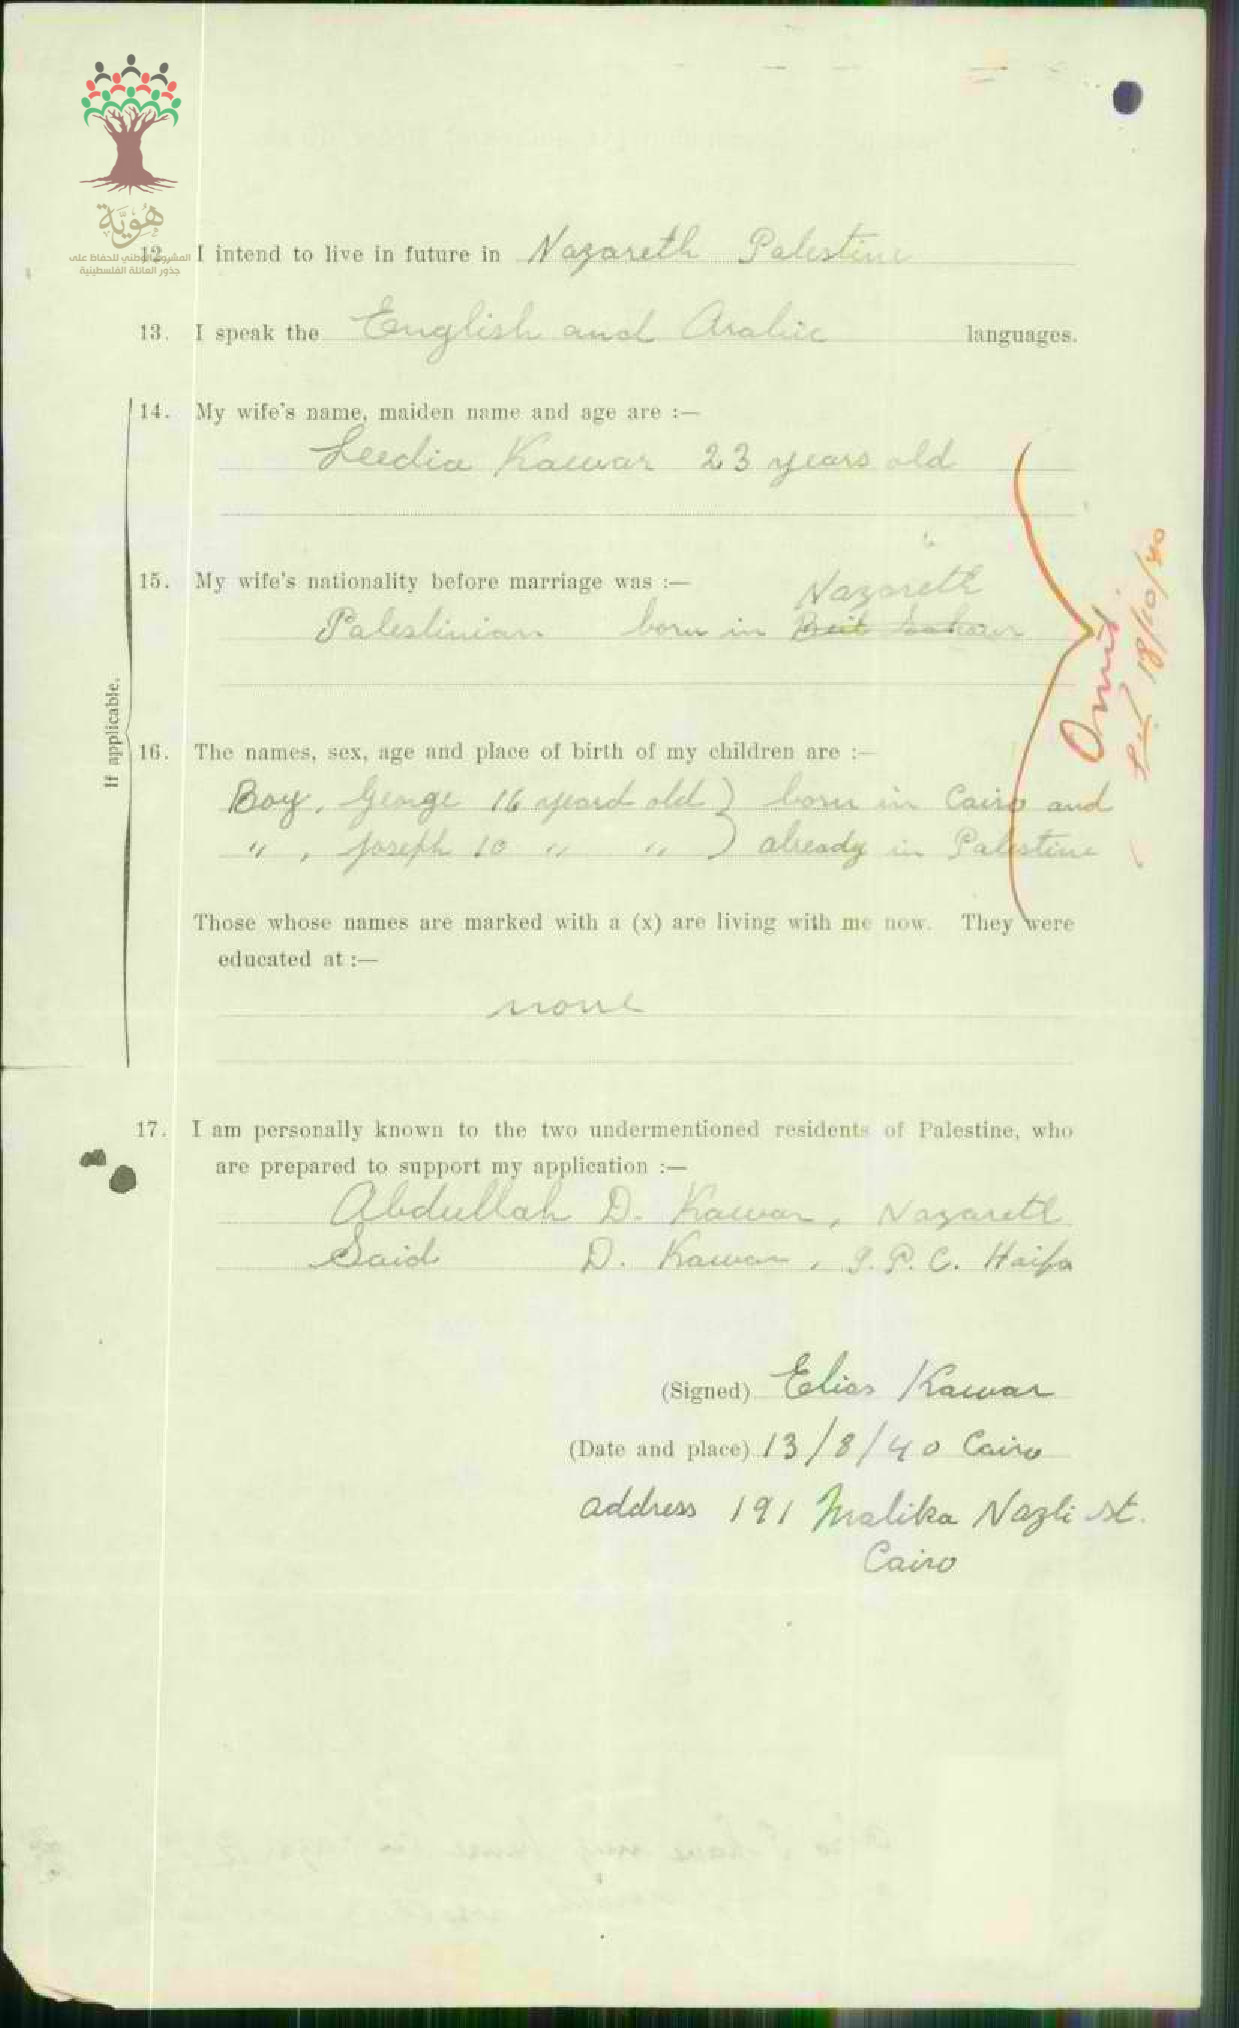 هُوِيَّة
المشروع الوطني للحفاظ على
جذور العائلة الفلسطينية
12. I intend to live in future in Nazareth Palestine
13. I speak the English and Arabic languages.
14. My wife's name, maiden name and age are :—
Leedia Kawar 23 years old
15. My wife's nationality before marriage was :—
Nazareth
Palestinian born in Beit Sahour
If applicable.
16. The names, sex, age and place of birth of my children are :—
Boy, George 16 yeard old ) born in Cairo and
" , Joseph 10 " " ) already in Palestine
Omit
18/10/40
Those whose names are marked with a (x) are living with me now. They were
educated at :—
none
17. I am personally known to the two undermentioned residents of Palestine, who
are prepared to support my application :—
Abdullah D. Kawar, Nazareth
Said D. Kawar, I.P.C. Haifa
(Signed) Elias Kawar
(Date and place) 13/8/40 Cairo
address 191 Malika Nazli st.
Cairo